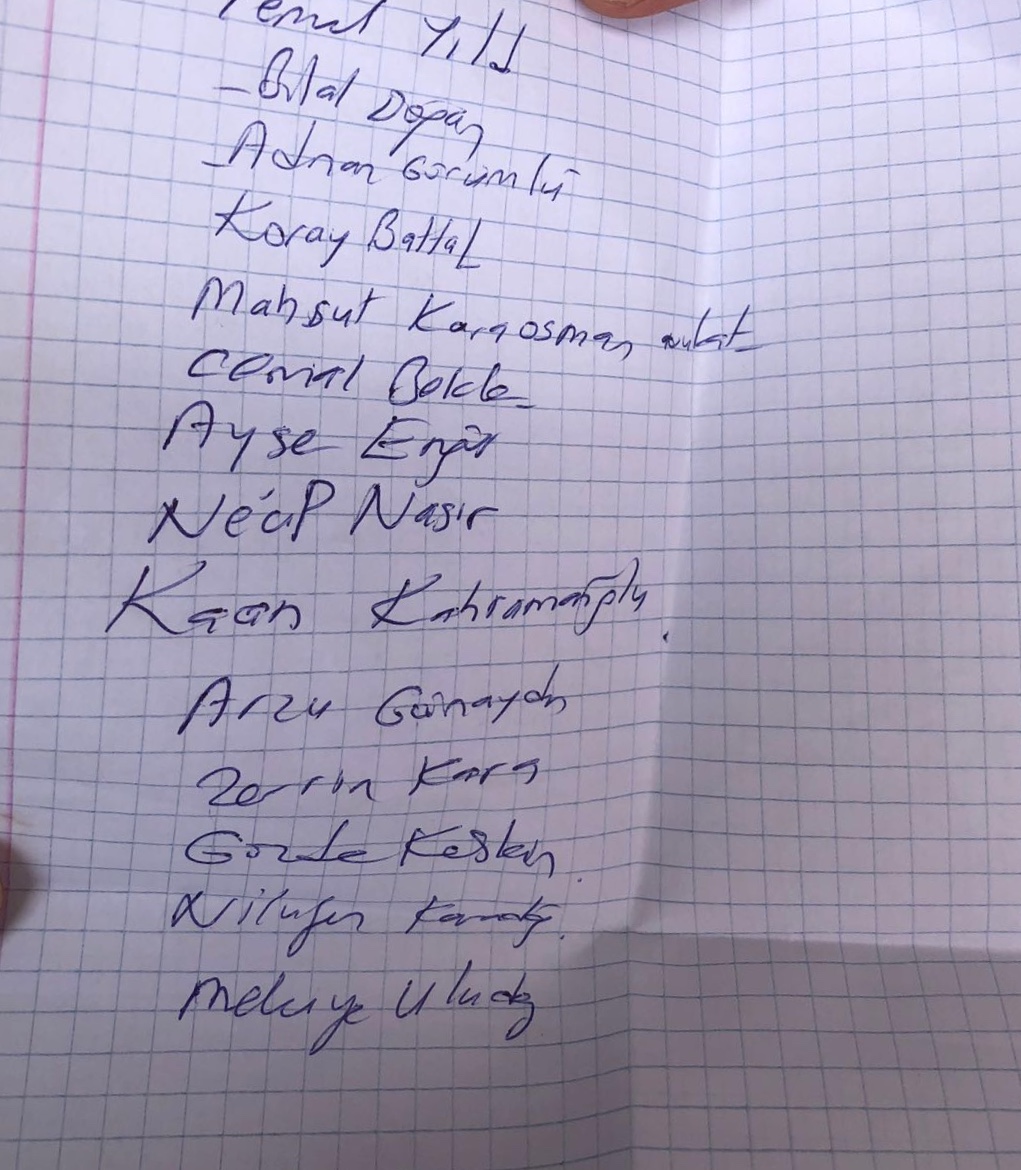 Temel Yıld
- Bilal Doğan
- Adnan Görümlü
Koray Battal
Mahsut Karaosman avukat
Cemal
Ayşe
Necip Nasır
Kaan Kahramanoğlu
Arzu Günaydın
Zerrin Kara
Gözde Keskin
Nilüfer
Meluye Uludağ